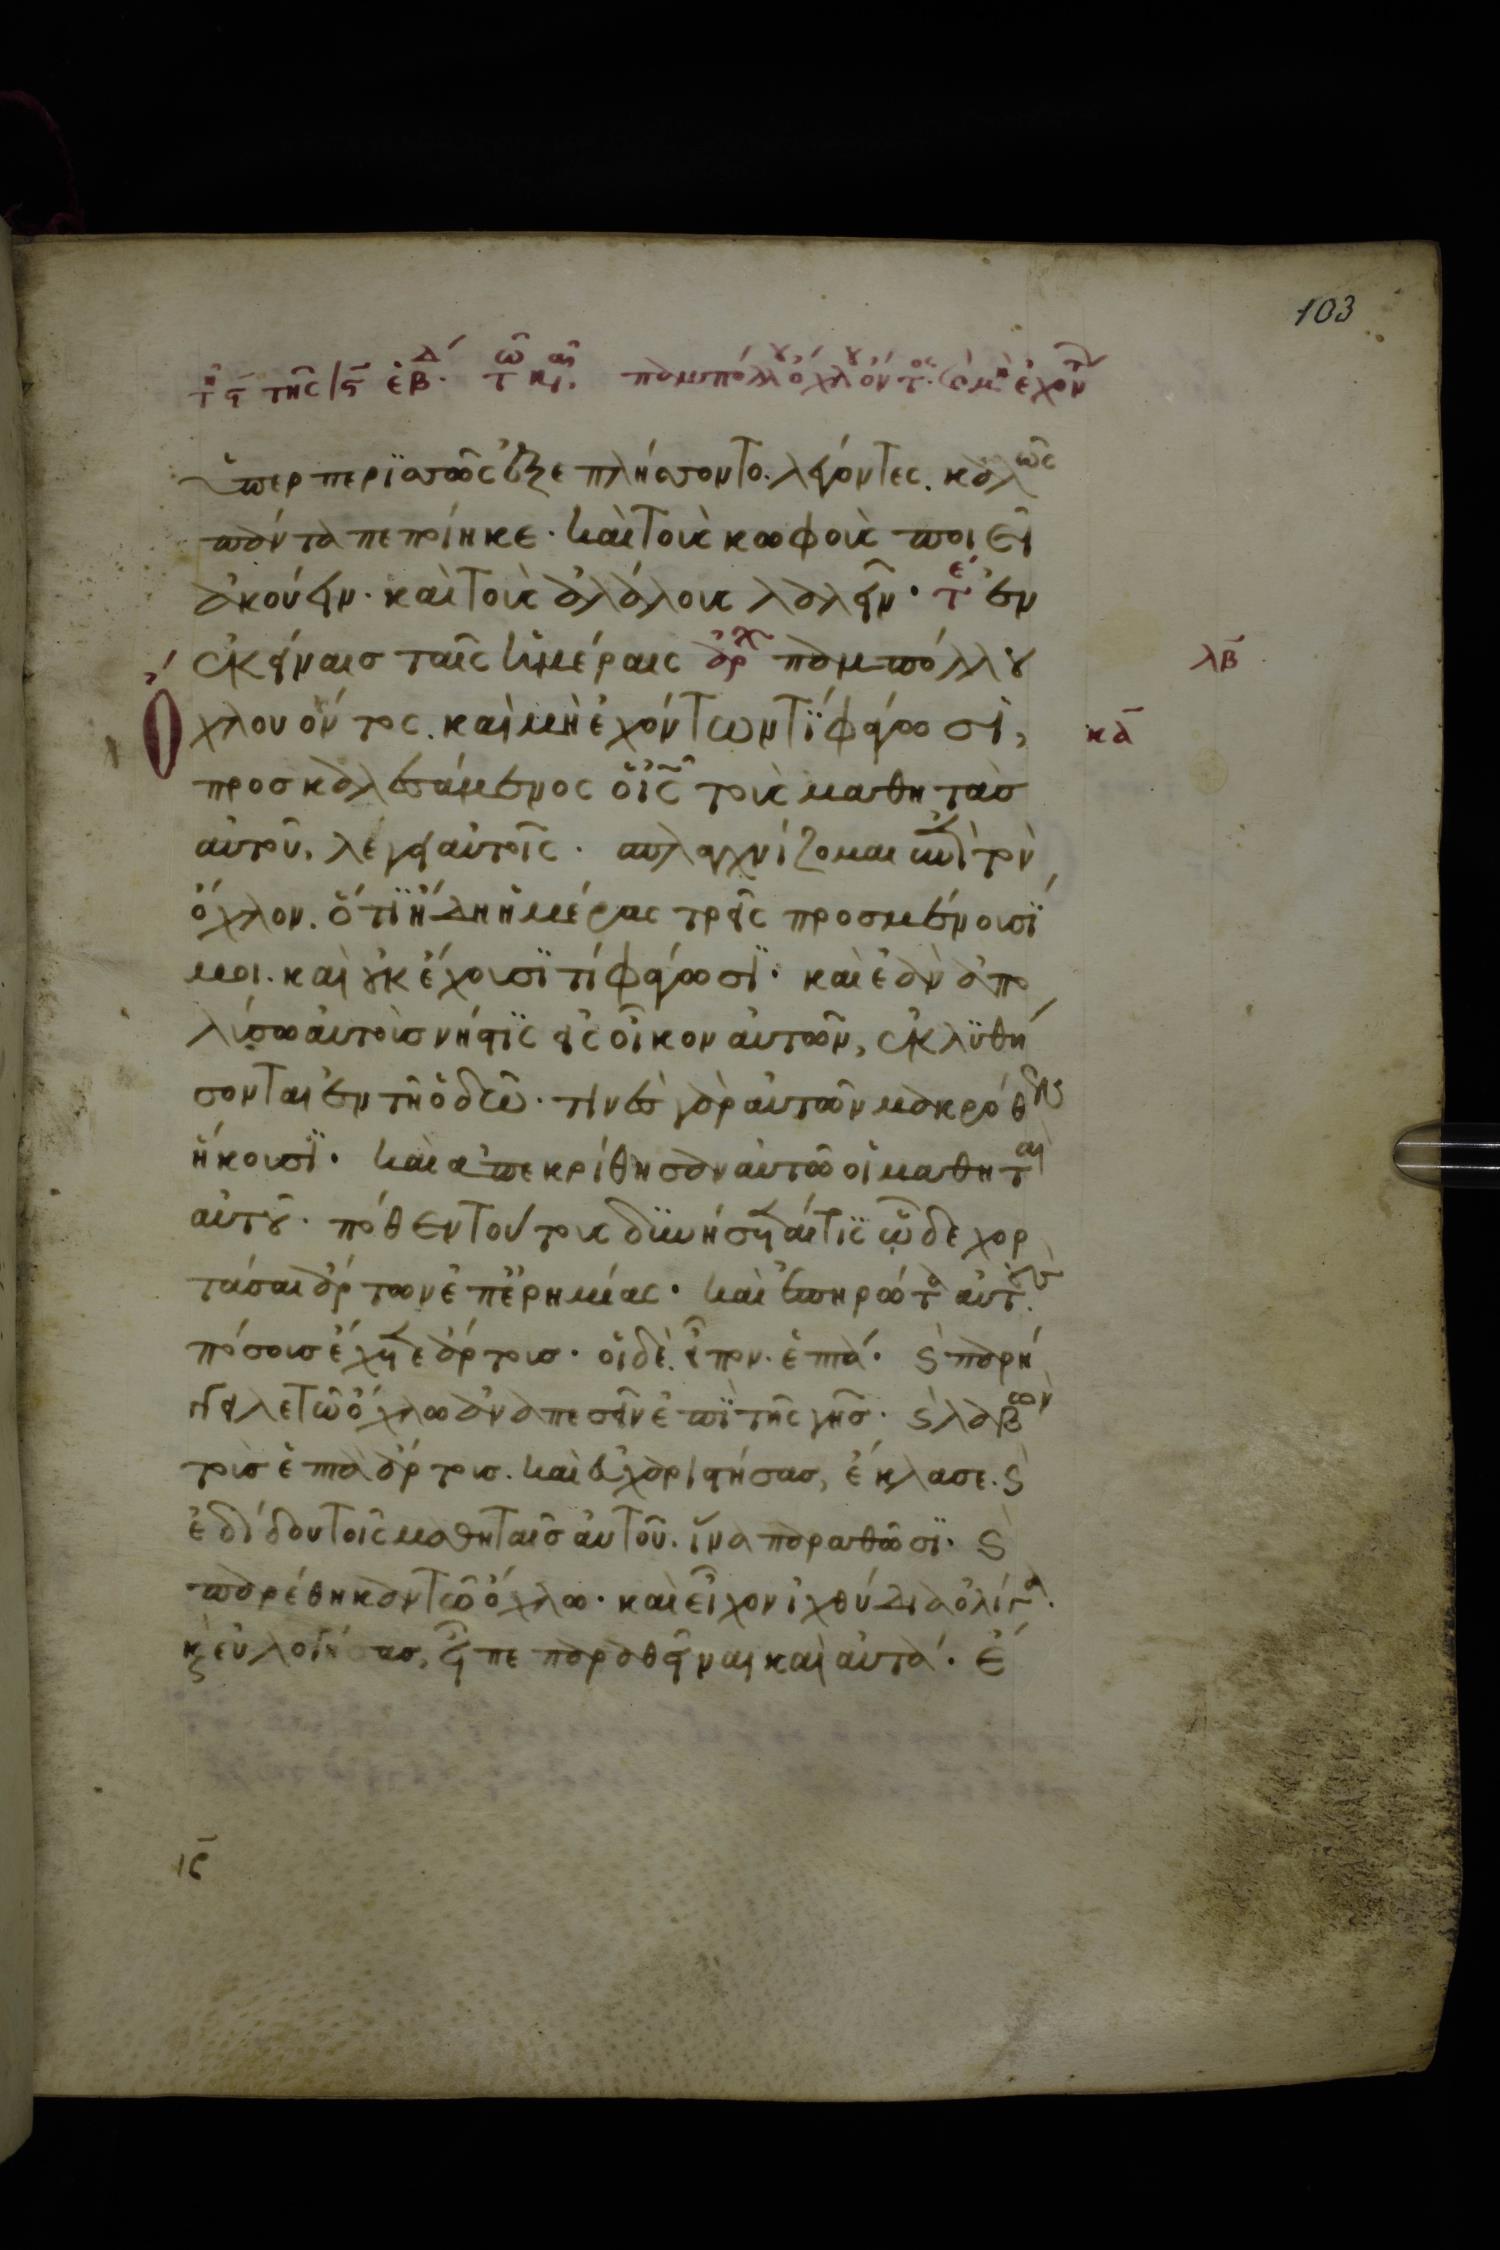 103
τῇ ϛ τῆς ιϛ ἑβδ. τῷ καιρ. παμπόλλου ὄχλου ὄντος (καὶ) μὴ ἐχόντων
ὑπερπερισσῶς ἐξεπλήσσοντο. λέγοντες. καλῶς
πάντα πεποίηκε· καὶ τοὺς κωφοὺς ποιεῖ
ἀκούειν· καὶ τοὺς ἀλάλους λαλεῖν· τέ ἐν
ἐκείναις ταῖς ἡμέραις ἀρχ παμπόλλου
λβ
ὄχλου ὄντος. καὶ μὴ ἐχόντων τί φάγωσι,
κα
προσκαλεσάμενος ὁ ις τοὺς μαθητὰς
αὐτοῦ, λέγει αὐτοῖς· σπλαγχνίζομαι ἐπὶ τὸν
ὄχλον. ὅτι ἤδη ἡμέρας τρεῖς προσμένουσί
μοι. καὶ οὐκ ἔχουσι τί φάγωσι· καὶ ἐὰν ἀπο
λύσω αὐτοὺς νήστις εἰς οἶκον αὐτῶν, ἐκλυθή
σονται ἐν τῇ ὁδῷ· τινὲς γὰρ αὐτῶν μακρόθεν
ἥκουσι· καὶ ἀπεκρίθησαν αὐτῷ οἱ μαθηταὶ
αὐτοῦ· πόθεν τούτους δυνήσεταί τις ὧδε χορ
τάσαι ἄρτων ἐπ' ἐρημίας· καὶ ἐπηρώτα αὐτούς.
πόσους ἔχετε ἄρτους· οἱ δὲ εἶπον. ἑπτά· καὶ παρή
γγειλε τῷ ὄχλῳ ἀναπεσεῖν ἐπὶ τῆς γῆς· καὶ λαβὼν
τοὺς ἑπτὰ ἄρτους. καὶ εὐχαριστήσας, ἔκλασε. καὶ
ἐδίδου τοῖς μαθηταῖς αὐτοῦ. ἵνα παραθῶσι· καὶ
παρέθηκαν τῷ ὄχλῳ· καὶ εἶχον ἰχθύδια ὀλίγα.
καὶ εὐλογήσας, εἶπε παραθεῖναι καὶ αὐτά· ἔ
ιϛ